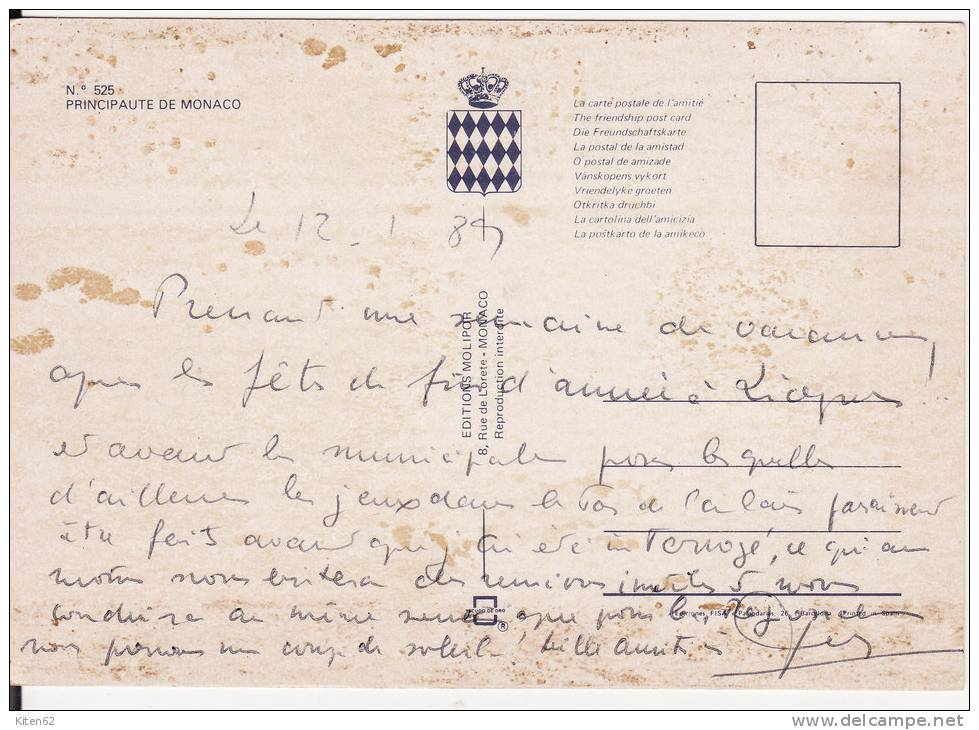 N.° 525
PRINCIPAUTE DE MONACO
La carte postale de l'amitié
The friendship post card
Die Freundschaftskarte
La postal de la amistad
O postal de amizade
Vänskopens vykort
Vriendelyke groeten
Otkritka druchbi
La cartolina dell'amicizia
La poŝtkarto de la amikeco
EDITIONS MOLIPOR
8, Rue de Lorete - MONACO
Reproduction interdite
Le 12 - 1 89
Prenant une semaine de vacances
après les fêtes de fin d'année à
et avant les municipales pour lesquelles
d'ailleurs les jeux dans le paraissent
être faits avant que j'ai été interrogé, ce qui au
moins nous évitera des réunions inutiles
conduire de même que pour les
nous prenons un coup de soleil! Mille amitiés
ESCUDO DE ORO
®
Ediciones FISA Palaudarias, 26 Barcelona Printed in Spain
Kiten62
www.delcampe.net